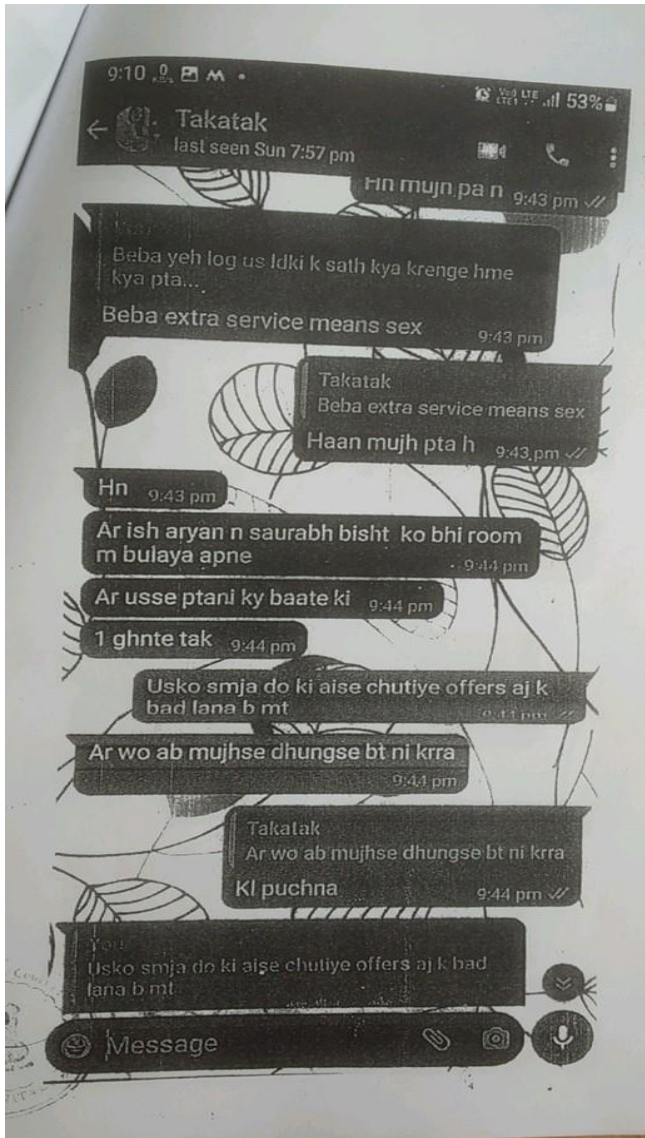 9:10
53%
Takatak
last seen Sun 7:57 pm
9:43 pm
Beba yeh log us ldki k sath kya krenge hme
kya pta...
Beba extra service means sex
9:43 pm
Takatak
Beba extra service means sex
Haan mujh pta h 9:43 pm
Hn 9:43 pm
Ar ish aryan n saurabh bisht ko bhi room
m bulaya apne
9:44 pm
Ar usse ptani ky baate ki 9:44 pm
1 ghnte tak 9:44 pm
Usko smja do ki aise chutiye offers aj k
bad lana b mt
9:44 pm
Ar wo ab mujhse dhungse bt ni krra
9:44 pm
Takatak
Ar wo ab mujhse dhungse bt ni krra
Kl puchna 9:44 pm
You
Usko smja do ki aise chutiye offers aj k bad
lana b mt
Message